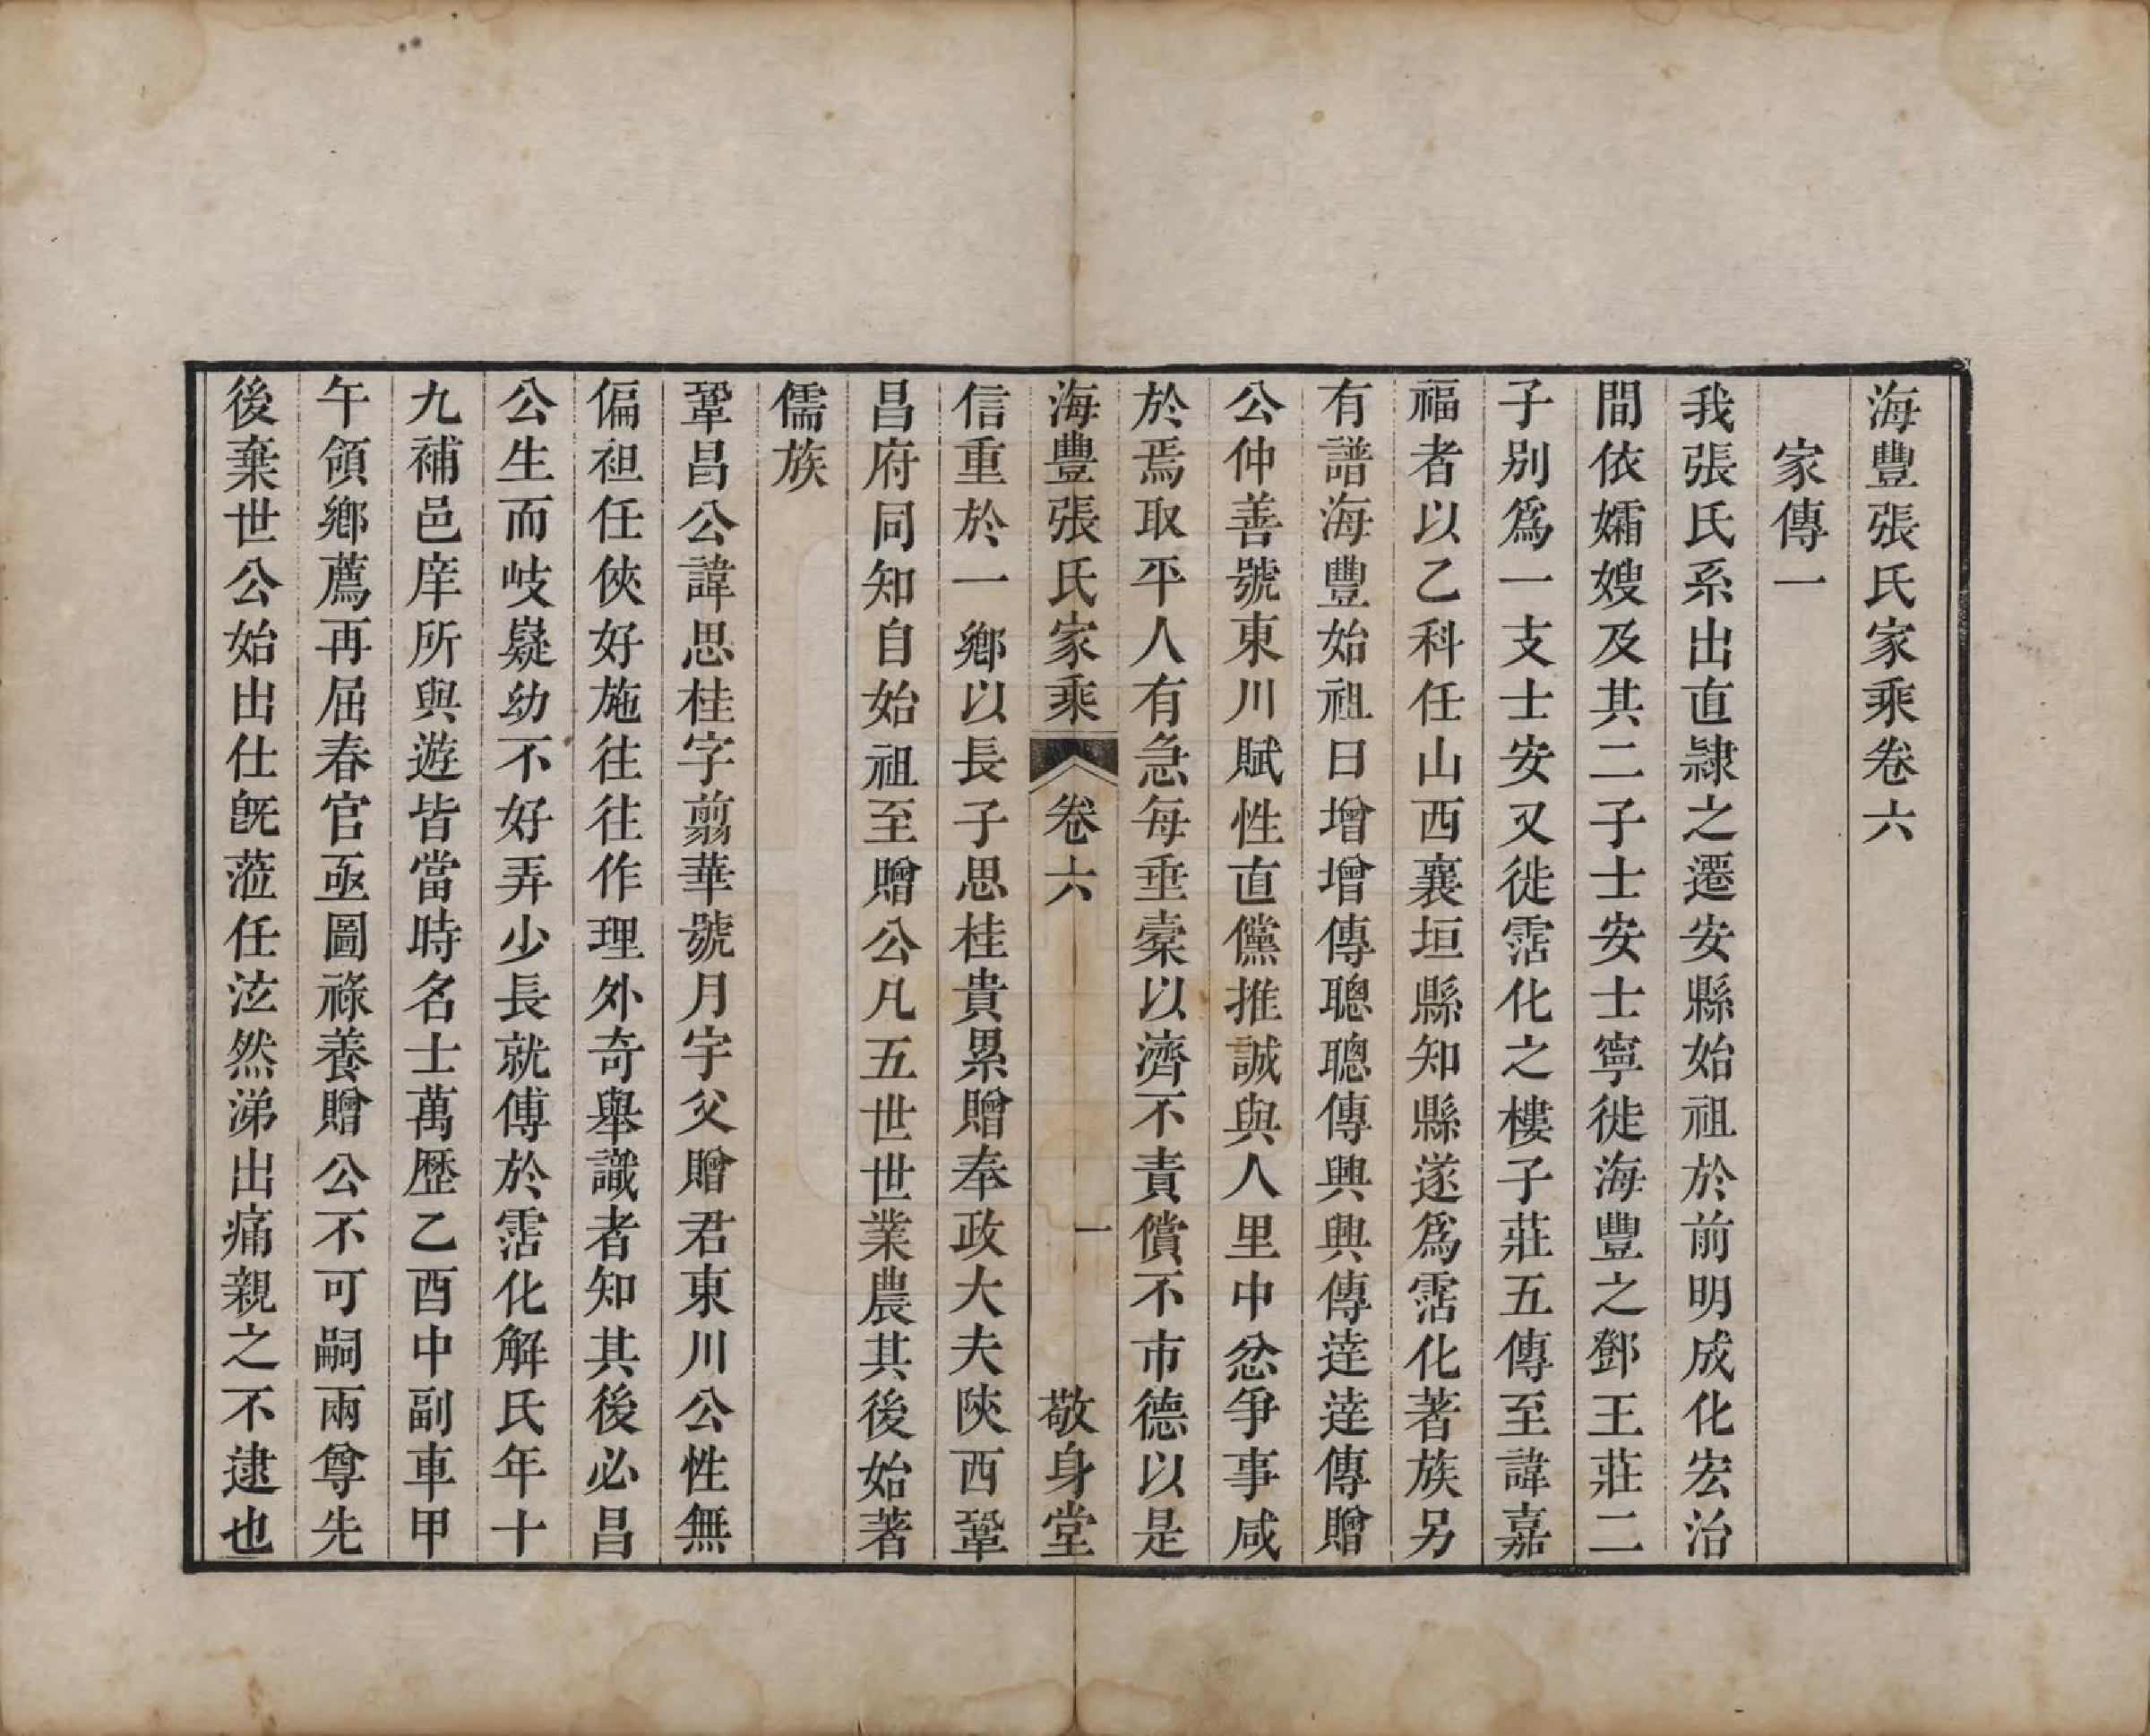 海豐張氏家乘卷六
家傳一
我張氏系出直隷之遷安縣始祖於前明成化宏治
間依孀嫂及其二子士安士寧徙海豐之鄧王莊二
子别爲一支士安又徙霑化之樓子莊五傳至諱嘉
福者以乙科任山西襄垣縣知縣遂爲霑化著族另
有譜海豐始祖曰增增傳聰聰傳興興傳逹逹傳贈
公仲善號東川賦性直儻推誠與人里中忿爭事咸
於焉取平人有急每垂橐以濟不責償不市德以是
海豐張氏家乘 卷六 一 敬身堂
信重於一鄉以長子思桂貴累贈奉政大夫陝西鞏
昌府同知自始祖至贈公凡五世世業農其後始著
儒族
鞏昌公諱思桂字翦華號月宇父贈君東川公性無
偏袒任俠好施往往作理外奇舉識者知其後必昌
公生而岐嶷幼不好弄少長就傅於霑化解氏年十
九補邑庠所與遊皆當時名士萬歷乙酉中副車甲
午領鄉薦再屈春官亟圖祿養贈公不可嗣兩尊先
後棄世公始出仕旣蒞任泫然涕出痛親之不逮也